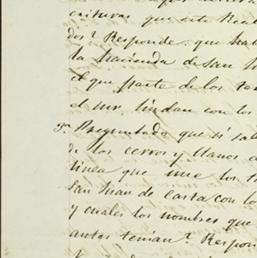 crituras que este Real
dos? Responde: que hab
la hacienda de San
el que parte de los te
el mr. lindan con los
9a. Preguntado que si sab
de los cerros y llanos
linea que une los
San Juan de casta con lo
y cuales los nombres que
antes tenian? Respon